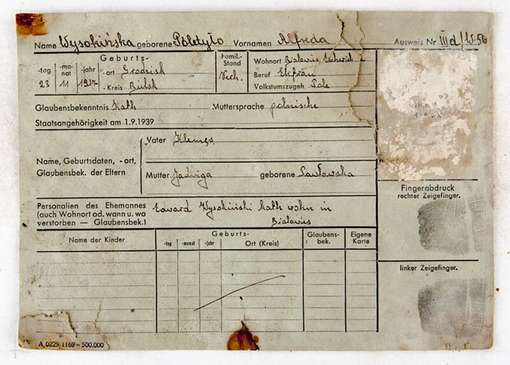 Name Wysokińska geborene Poletyło Vornamen Alfreda Ausweis Nr III d/W 56
Geburts-
-tag -mo-nat -jahr -ort Grodzisk
23 11 19 -Kreis Bielsk
Famil.-Stand
Verh.
Wohnort
Beruf Ehefrau
Volkstumszugeh. Pole
Glaubensbekenntnis Kath Muttersprache polnische
Staatsangehörigkeit am 1.9.1939
Name, Geburtsdaten, -ort, Glaubensbek. der Eltern
Vater Klemes
Mutter Jadwiga geborene
Personalien des Ehemannes
(auch Wohnort od. wann u. wo
verstorben — Glaubensbek.)
Edward Wysokiński Kath wohn in
Name der Kinder
Geburts-
-tag -monat -jahr Ort (Kreis)
Glaubens-bek.
Eigene Karte
Fingerabdruck
rechter Zeigefinger.
linker Zeigefinger.
A 0225 1169 - 500.000